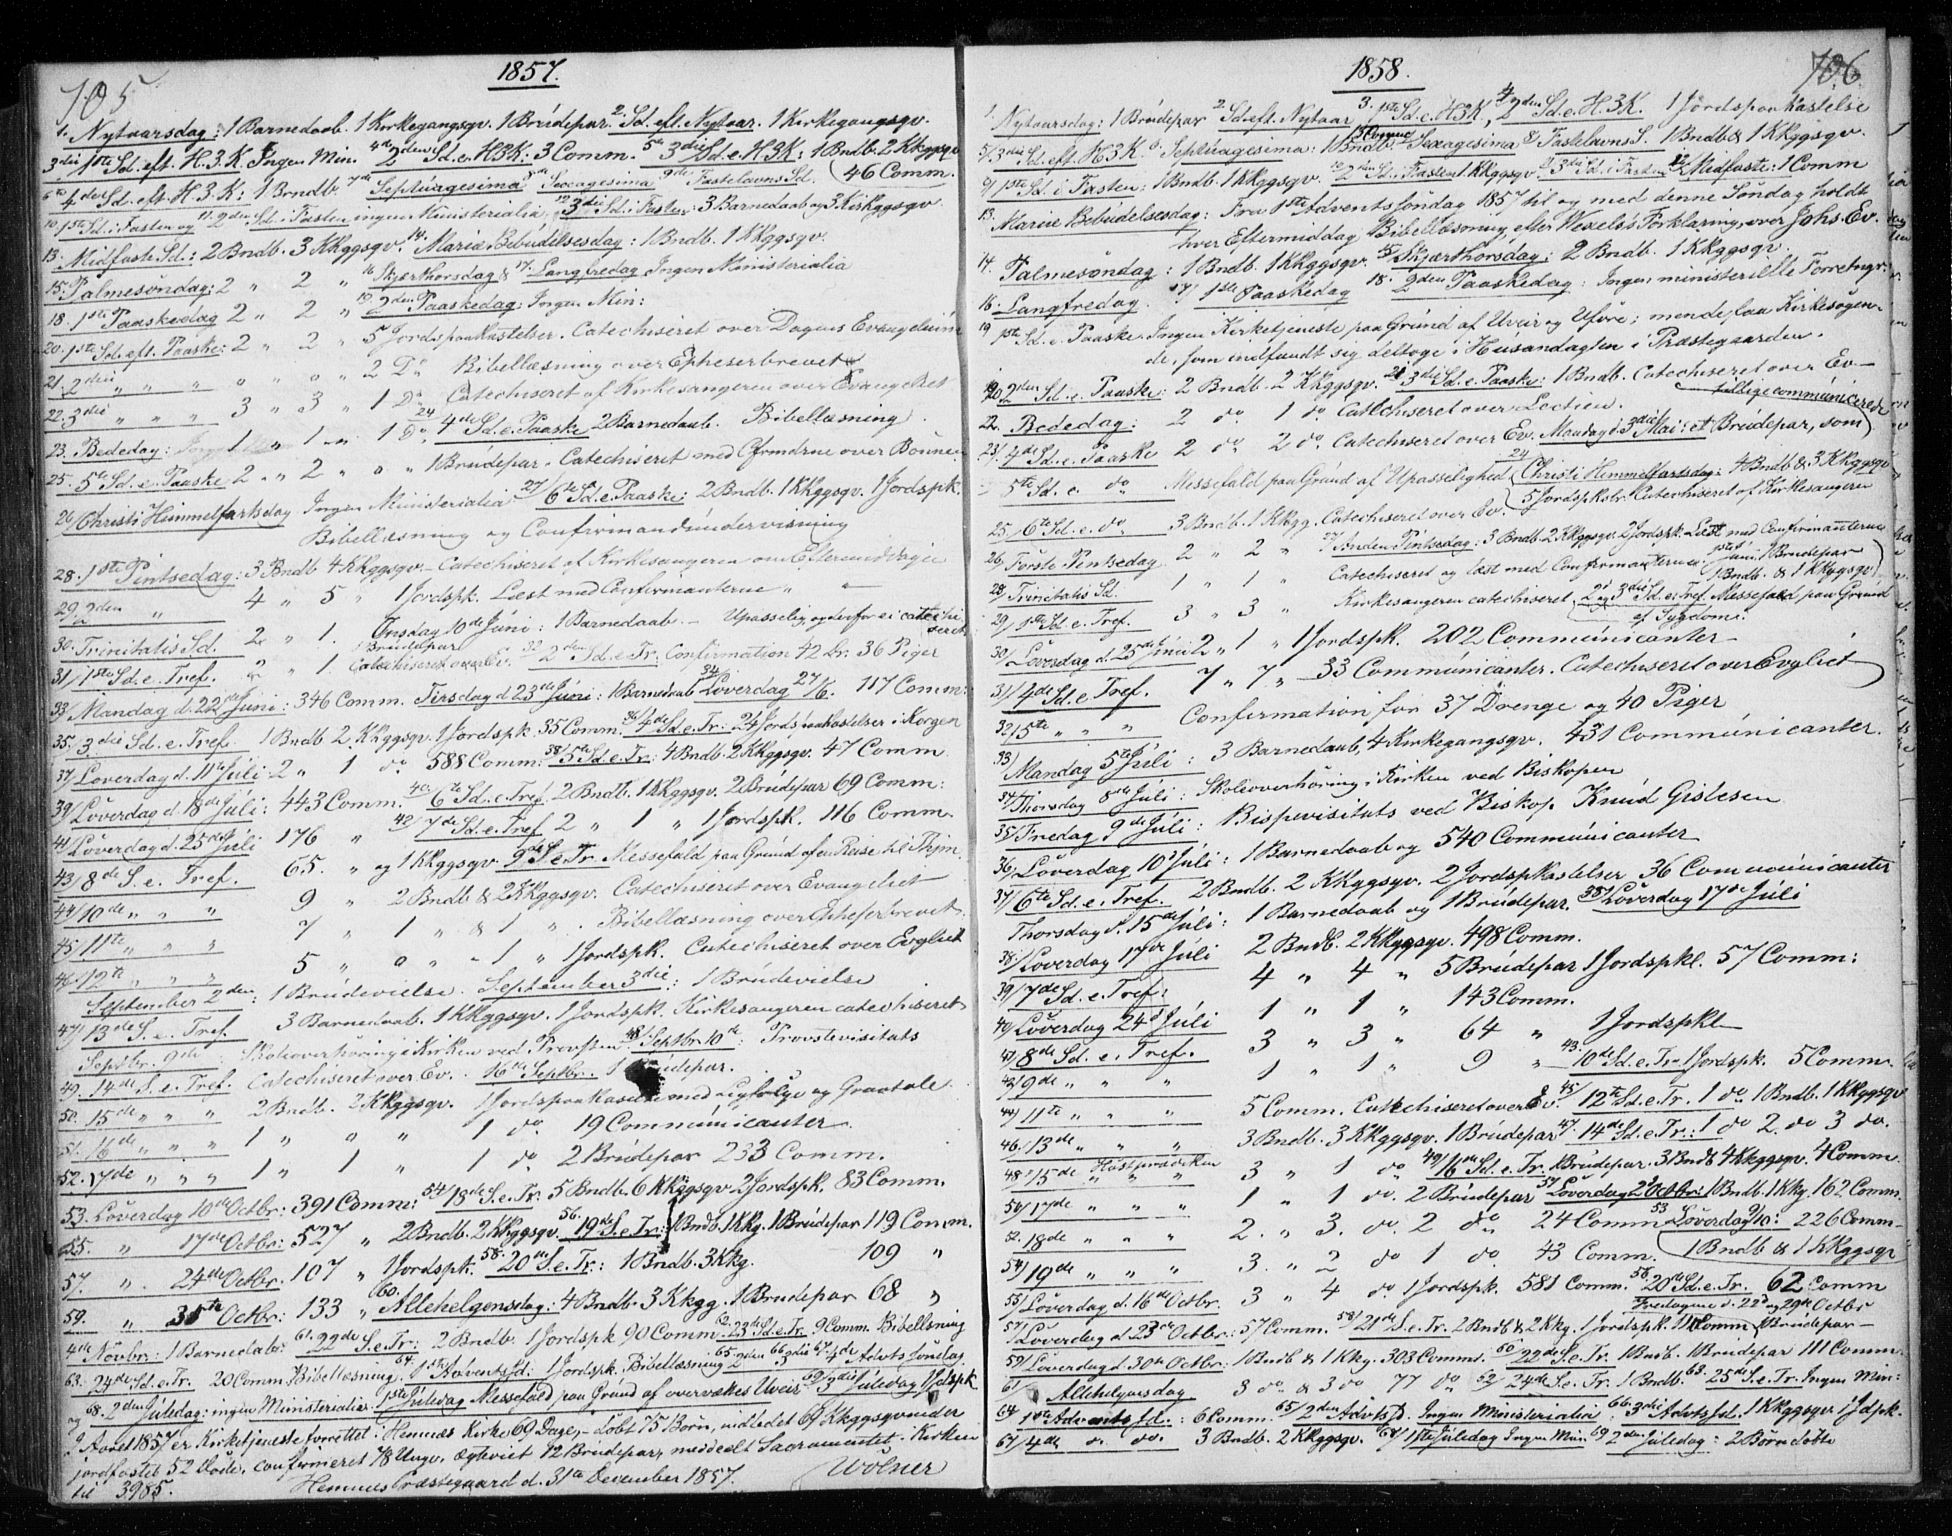 105
1857.
1. Nytaarsdag: 1 Barnedaab. 1 Kirkegangsqv. 1 Brúdepar. 2. Sd. eft. Nytaar. 1 Kirkegangsqv.
3die 1ste Sd. eft. H.3.K. Ingen Min. 4de 2den Sd. e. H3K: 3 Comm. 5te 3die Sd. e. H3K: 1 Bndb. 2 Kkggsqv
6te 4de Sd. eft. H.3.K: 1 Bndb. 7de Septúagesima 8de Sexagesima 9de Fastelavns Sd. 46 Comm.
10 1ste Sd. i Fasten og 11. 2den Sd. i Fasten ingen Ministerialia 12 3die Sd. i Fasten: 3 Barnedaab og 3 Kirkggsqv
13. Midfaste Sd.: 2 Bndb. 3 KKggsqv. 14. Mariæ Bebúdelsesdag: 1 Bndb. 1 Kkggsqv.
15. Palmesøndag: 2 " 2 " 16 Skjærthorsdag & 17. Langfredag Ingen Ministerialia
18. 1ste Paaskedag 2 " 2 " 19 2den Paaskedag: Ingen Min:
20. 1ste Sd. eft. Paaske: 2 " 2 " 5 Jordspaakastelser. Catechiseret over Dagens Evangeliúm
21. 2den " " " " " " 2 Do Bibellæsning over Epheserbrevet
22. 3die " " " 3 " 3 " 1 Do Catechiseret af Kirkesangeren over Evangeliet
23. Bededag: 1 " 1 " 1 Do. 24 4de Sd. e. Paaske 2 Barnedaab. Bibellæsning.
25. 5te Sd. e. Paaske 2 " 2 " " " 1 Brúdepar. Catechiseret med Cfrmdrne over Bønnen
26/ Christi Himmelfartsdag Ingen Ministerialia 27/ 6te Sd. e. Paaske: 2 Bndb. 1 KKggsqv. 1 Jordspk.
Bibellæsning og Confirmandúndervisning
28. 1ste Pintsedag: 3 Bndb 4 KKggsqv. - Catechiseret af Kirkesangeren om Eftermiddagen
29/ 2den " 4 " 5 " 1 Jordspk. Læst med Confirmanterne " "
30. Trinitatis Sd. 2 " 1. Onsdag 10de Júni: 1 Barnedaab. - Upasselig og derfor ei catechi
seret
31/ 1ste Sd. e. Tref. 2 " 1 1 Brúdepar Catechiseret over Ev. 32 2den Sd. e. Tr: Confirmation 42 Dr. 36 Piger
33/ Mandag d. 22de Júni: 346 Comm. Tirsdag d 23de Júni: 1 Barnedaab 34 Løverdag 27/6. 117 Comm:
35. 3die Sd. e. Tref. 1 Bndb. 2 Kkggsqv. 1 Jordspk. 35 Comm. 36 4de Sd. e. Tr: 24 Jordspaakastelser i Korgen
37/ Løverdag d. 11te Júli. 2 " 1 do. 588 Comm. 38/ 5te Sd. e. Tr: 4 Bndb. 2 KKggsqv. 47 Comm.
39/ Løverdag d 18de Júli: 443 Comm. 40. 6te Sd. e. Tref. 2 Bndb. 1 KKggsqv. 2 Brúdepar 69 Comm:
41 Løverdag d. 25de Júli 176 " 42/ 7de Sd. e. Tref. 2 " 1 " 1 Jordspk. 116 Comm.
43/ 8de S. e. Tref. 65. " og 1 KKggsqv. 9de S. e. Tr. Messefald paa Grúnd af en Reise til Thjm.
44/ 10de " " " 9 " 2 Bndb & 2 KKggsqv. Catechiseret over Evangeliet
45/ 11te " " " 7 " 1 " & 1 " . Bibellæsning over Epheserbrevet.
46/ 12te " " " 5 " " " - 1 " 1 Jordspk. Catechiseret over Evgliet
September 2den: 1 Brúdevielse. September 3die: 1 Brúdevielse
47/ 13de S. e. Tref. 3 Barnedaab. 1 KKggsqv. 1 Jordspk. Kirkesangeren catechiseret
Septbr. 9de: Skoleoverhøring i Kirken ved Provsten 48/ Septbr 10de: Provstevisitats
49. 14de S. e. Tref. Catechiseret over Ev. 16de Septbr. 1 Brúdepar.
50. 15de " " " 2 Bndb. 2 KKggsqv. 1 Jordspaakastelse med Ligfølge og Gravtale.
51. 16de " " " 1 " " " 1 do. 19 Commúnicanter.
52. 17de " " " 1 " 1 " 1 do. 2 Brúdepar 233 Comm.
53. Løverdag 10de Octbr: 391 Comm: 54/ 18de S. e. Tr. 5 Bndb. 6 KKggsqv. 2 Jordspk. 83 Comm.
55. " 17de Octbr: 527 " 2 Bndb. 2 Kkggsqv. 56. 19de S. e. Tr: 1 Bndb. 1 Kkg. 1 Brúdepar 119 Comm.
57. " . 24de Octbr. 107 " 1 Jordspk. 58. 20de S. e. Tr: 1 Bndb. 3 Kkg. 109 "
59. " 31te Octbr: 133 " 60. Allehelgensdag: 4 Bndb. 3 Kkgg. 1 Brudepar 68 "
4de Növbr: 1 Barnedab: 61. 22de S. e. Tr: 2 Bndb. 1 Jordspk 90 Comm. 62. 23de Sd. e. Tr. 9 Comm. Bibellsning
63. 24de Sd. e. Tr. 20 Comm. Bibellæsning. 64. 1ste Advents Sd: 1 Jordspk. Bibellæsning 65. 2den 66. 3die 67. 4de Advts Søndag.
og 68. 2den Júledag: ingen Ministerialia. 1ste Júledag Messefald paa Grúnd af overvættes Uveir 69 3die Júledag 1 Jdspk
I Aaret 1857 er Kirketjeneste forrettet i Hemnes Kirke 69 Dage, - døbt 75 Børn, indledet 69 Kkggsqvinder
jordfæstet 52 Døde, confirmeret 78 Unge, ægteviet 12 Brúdepar, meddeelt Sacramentet i Kirken
til 3985. Hemnes Præstegaard d. 31te December 1857. Wolner
106
1858.
1. Nytaarsdag: 1 Brúdepar 2. Sd. eft. Nytaar 3. 1ste Sd. e. H3K, 4 2den Sd. e. H.3K. 1 Jordspaakastelse
5/ 3die Sd. eft. H3K. 6. Septúagesima: 1 Bndb. 7 Sexagesima 8/ Fastelavns S. 1 Bndb & 1 KKggsqv.
9/ 1ste Sd. i Fasten: 1 Bndb. 1 KKggsqv. 10 2den Sd. i Fasten 1 KKggsqv. 11 3die Sd. i Fasten 12 Midfaste: 1 Comm
13. Mariæ Bebúdelsesdag: Fra 1ste Advents Søndag 1857 til og med denne Søndag holdt
hver Eftermiddag Bibellæsning efter Wexels's Forklaring over Johs Ev.
14. Palmesøndag: 1 Bndb. 1 KKggsqv. 15 Skjærthorsdag: 2 Bndb. 1 KKggsqv.
16. Langfredag 17/ 1ste Paaskedag 18. 2den Paaskedag: Ingen ministerielle Forretngr.
19. 1ste Sd. e. Paaske. Ingen Kirketjeneste paa Grúnd af Uveir og Uføre; men de faa Kirkesøgen-
de, som indfandt sig deltoge i Húsandagten i Præstegaarden.
20 2den Sd. e. Paaske: 2 Bndb. 2 KKggsqv. 21 3die Sd. e. Paaske: 1 Bndb. Catechiseret over Ev-
22. Bededag: 2 do 1 do Catechiseret over Lectien. tillige commúnicerede
23/ 4de Sd. e. Paaske 2 do 2 do. Catechiseret over Ev. Mandag d. 3die Mai: et Brúdepar, som
5te Sd. e. do Messefald paa Grúnd af Upasselighed 24 Christi Himmelfartsdag: 4 Bndb & 3 KKggsqv
5 Jordspkstr. Catechiseret af Kirkesangeren
25/ 6te Sd. e. do 3 Bndb. 1 Kkgg. Catechiseret over Ev.
26. Første Pintsedag 2 " 2 " 27 Anden Pintsedag: 3 Bndb 2 KKggsqv. 2 Jordspk. Læst med Confirmanterne
28/ Trinitatis Sd. 1 " 1 " Catechiseret og læst med Confirmanterne. 1ste Júni: 1 Brúdepar 1 Bndb. & 1 KKggsqv
29/ 1ste Sd. e. Tref. 3 " 3 " Kirkesangeren catechiseret. 2 og 3die Sd. e. Tref. Messefald paa Grúnd
af Sygdom.
30/ Løverdag d. 25de Júni 2 " 1 " 1 Jordspk. 202 Commúnicanter
31/ 4de Sd. e. Tref. 7 " 7 " 33 Commúnicanter. Catechiseret over Evgliet
32/ 5te " " " Confirmation for 37 Drenge og 40 Piger
33/ Mandag 5te Júli: 3 Barnedaab, 4 Kirkegangsqv. 431 Commúnicanter.
34/ Thorsdag 8de Júli: Skoleoverhøring i Kirken ved Biskopen
35/ Fredag 9de Júli: Bispevisitats ved Biskop Knúd Gislesen
36/ Løverdag 10de Júli: 1 Barnedaab og 540 Commúnicanter
37/ 6te Sd. e. Tref. 2 Bndb. 2 KKggsqv. 2 Jordspkastelser 36 Commúnicanter
Thorsdag d. 15de Júli: 1 Barnedaab og 1 Brúdepar. 38/ Løverdag 17de Júli
38/ Løverdag 17de Júli 2 Bndb. 2 KKggsqv. 498 Comm.
39/ 7de Sd. e. Tref: 4 " 4 " 5 Brúdepar 1 Jordspkl. 57 Comm:
40/ Løverdag 24de Júli 1 " 1 " 143 Comm.
41/ 8de Sd. e. Tref. 3 " 3 " 64 " 1 Jordspkl
42/ 9de " " " 1 " 1 " 9 " 43. 10de Sd. e. Tr. 1 Jordspk. 5 Comm.
44/ 11te " " " 5 Comm. Catechiseret over Ev. 45/ 12te Sd. e. Tr. 1 do. 1 Bndb. 1 KKggsqv
46. 13de " " " 3 Bndb. 3 KKggsqv. 1 Brúdepar 47. 14de Sd. e. Tr: 1 do 2. do 3 do.
48. 15de " " " Høstprædiken 3 " 1 do 49/ 16de Sd. e. Tr. 1 Brúdepar. 3 Bndb 4 Kkggsqv. 4 Comm.
50/ 17de " " " 1 " 1 do. 2 Brúdepar 51 Løverdag 2 Octbr: 1 Bndb. 1 Kkg. 162 Comm.
52. 18de " " " 2. " 3. do. 2 do 24 Comm. 53 Løverdag 9/10: 226 Comm-
54) 19de " " " 3. " 2 do 1 do. 43 Comm. 1 Bndb & 1 KKggsqv
55/ Løverdag d. 16de Octbr. 3 " 4 do 1 Jordspk. 581 Comm. 56. 20de Sd. e. Tr. 62 Comm
57/ Løverdag d 23de Octbr.: 57 Comm. 58/ 21de S. e. Tr. 2 Bndb & 2 Kkg. 1 Jordspk. 111 Comm Fredagene d. 22d og 29de Octbr 1 Brúdepar
59/ Løverdag d. 30te Octbr: 1 Bndb & 1 Kkg. 303 Comms. 60 22de S. e. Tr. 1 Bndb. 1 Brúdepar 111 Comm.
61/ Allehelgensdag 3 do. & 3 do 77 do 62/ 24de S. e. Tr. 1 Bndb. 63. 25de S. e. Tr. Ingen Min:
64. 1ste Advents Sd.: 6 Comm. 65/ 2den Advts S. Ingen Ministerialia. 66. 3die Advts Sd. 1 KKggsqv 1 Jdpk.
67/ 4de do. do. 3 Bndb. 2 KKggsqv. 68/ 1ste Júledag Ingen Min. 69 2den Júledag: 2 Børn døbte